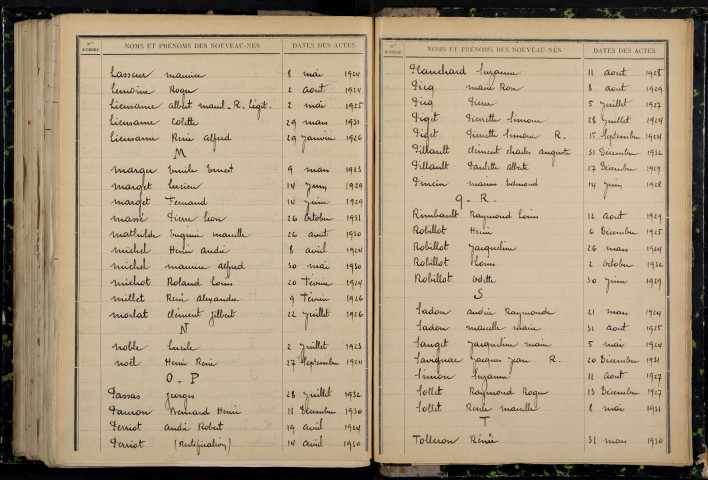 Nos D'ORDRE NOMS ET PRÉNOMS DES NOUVEAU-NÉS DATES DES ACTES
Lasseur maurice 8 mai 1924
Lemoine Roger 2 aout 1924
Liensame albert marcel. R. Légit. 2 mai 1925
Liensame Colette 29 mars 1931
Liensame René alfred 29 janvier 1926
M
marger Emile Ernest 9 mars 1923
marget Lucien 14 juin 1929
marget Fernand 14 juin 1929
massé Pierre Leon 26 octobre 1931
mathilde Eugénie marcelle 26 avril 1930
michel Henri andré 8 avril 1924
michel maurice alfred 30 mai 1930
michot Roland Louis 20 Février 1924
millet René alexandre 9 Février 1926
morlat Clément Gilbert 22 juillet 1926
N
noble Lucile 2 juillet 1923
noël Henri René 27 Septembre 1924
O - P
Passas Georges 28 juillet 1932
Pauron Bernard Henri 11 Décembre 1930
Perriot andré Robert 19 avril 1924
Perriot (Rectification) 14 avril 1930
Nos D'ORDRE NOMS ET PRÉNOMS DES NOUVEAU-NÉS DATES DES ACTES
Planchard Suzanne 11 aout 1928
Picq marie Rose 8 aout 1929
Picq Pierre 5 juillet 1927
Piget Pierrette Simone 28 juillet 1924
Piget Pierrette Simone R. 1er Septembre 1924
Pillault Clément Charles auguste 31 Décembre 1932
Pillault Paulette albert 17 Décembre 1929
Pincin marcus Edmond 14 juin 1928
Q - R.
Rimbault Raymond Louis 12 aout 1929
Robillot Henri 6 Décembre 1925
Robillot Jacqueline 26 mars 1924
Robillot Louis 2 octobre 1932
Robillot Odette 30 juin 1929
S
Sadon andrée Raymonde 21 mars 1924
Sadon marcelle marie 31 aout 1925
Sauget Jacqueline marie 5 mai 1924
Savignac Jacques Jean R. 20 Décembre 1931
Simon Suzanne 11 aout 1927
Sollet Raymond Roger 13 Décembre 1927
Sollet Renée marcelle 8 mai 1931
T
Tolleron Rénée 31 mars 1930